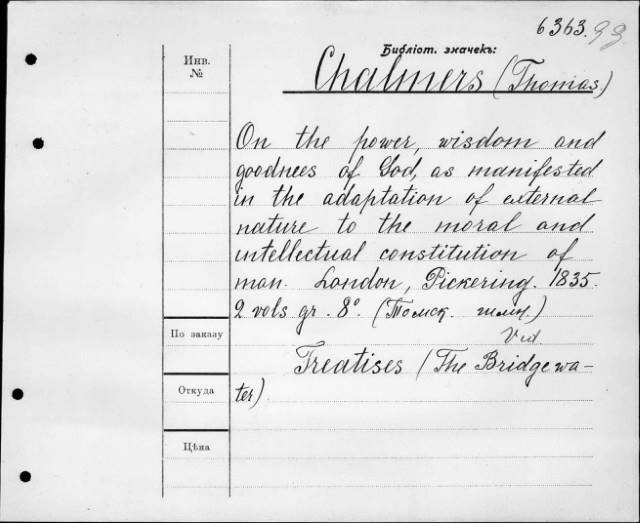 6363.
Библіот. значекъ:
Инв.
№
Chalmers (Thomas)
On the power, wisdom and
goodnees of God, as manifested
in the adaptation of external
nature to the moral and
intellectual constitution of
man. London, Pickering. 1835.
2 vols gr. 8°. (Томск.
По заказу
Vid
Treatises (The Bridgewa-
Откуда
ter)
Цѣна